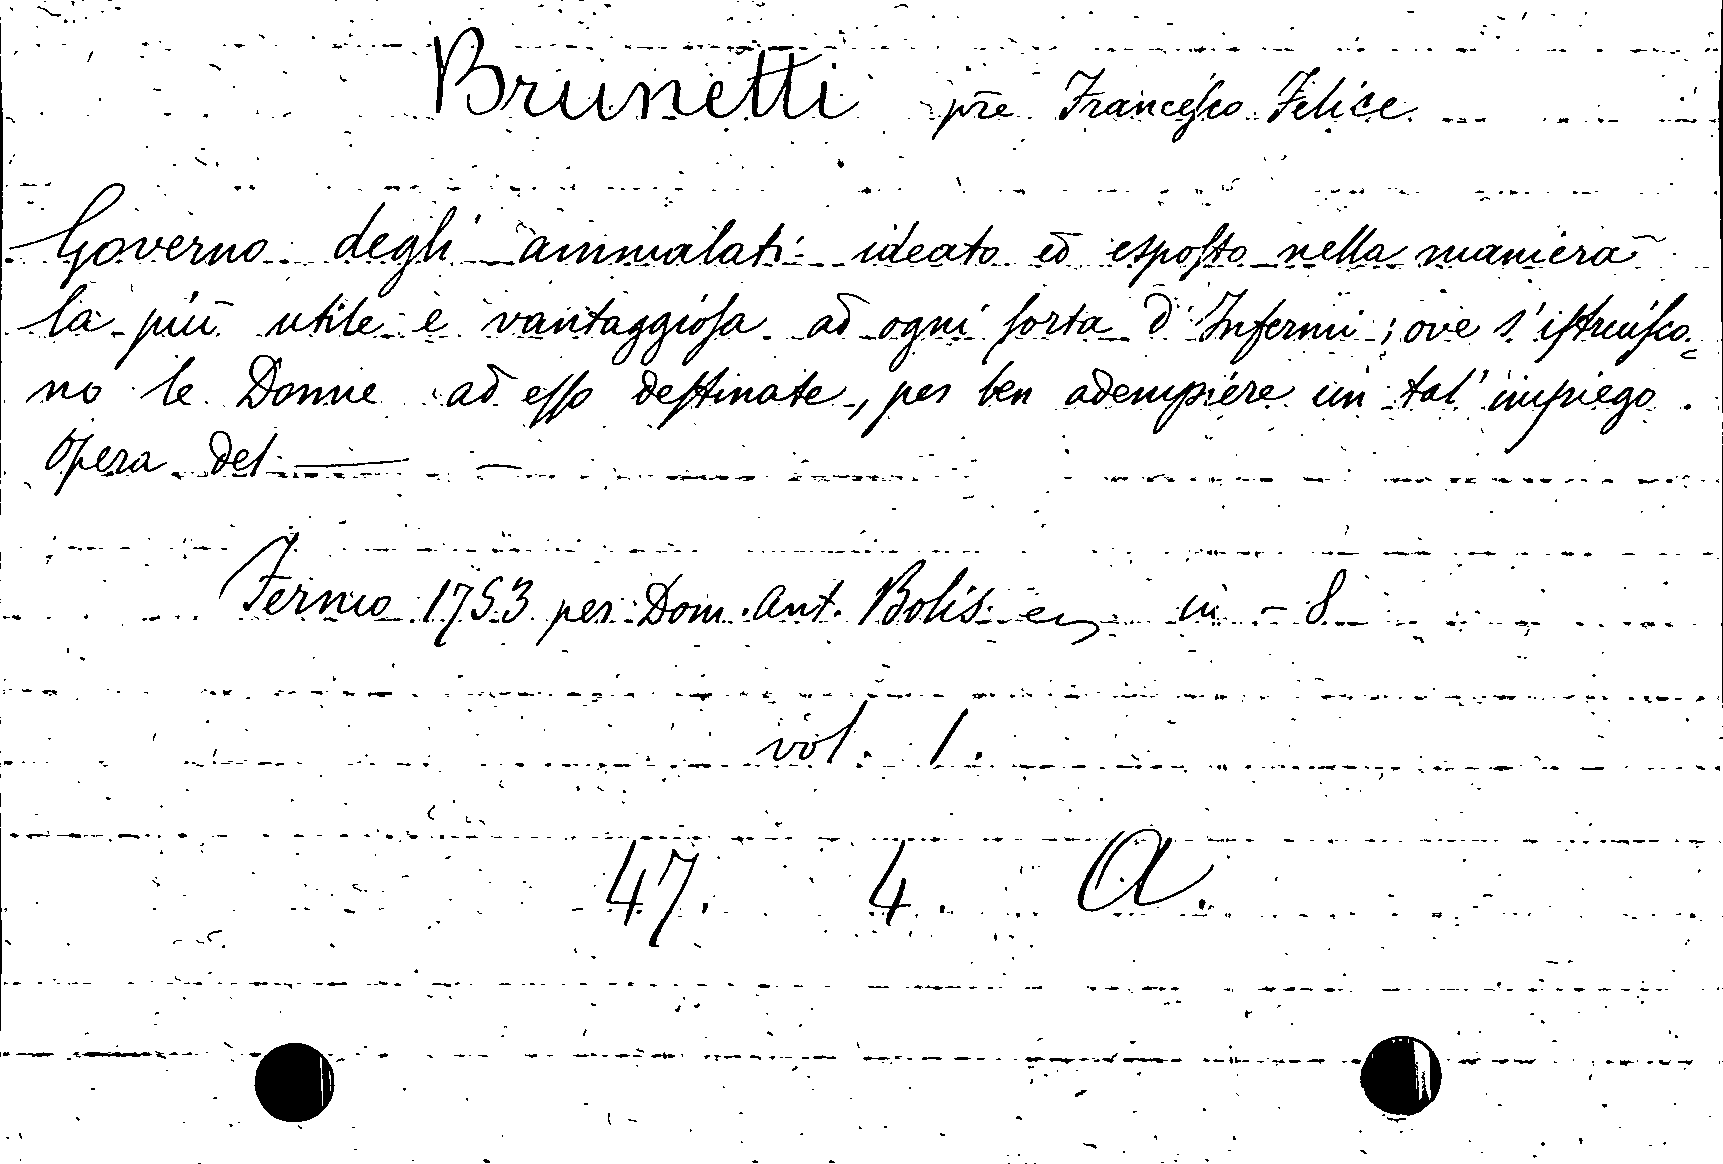 Brunetti pr̃e Francesco Felice
Governo degli ammalati ideato ed esposto nella maniera
la più utile e vantaggiosa ad ogni sorta d'Infermi; ove s'istruisco=
no le Donne ad esso destinate, per ben adempiere un tal' impiego.
Opera del —— —
Fermo 1753 per Dom. Ant. Bolis in - 8
vol. 1.
47. 4. A.